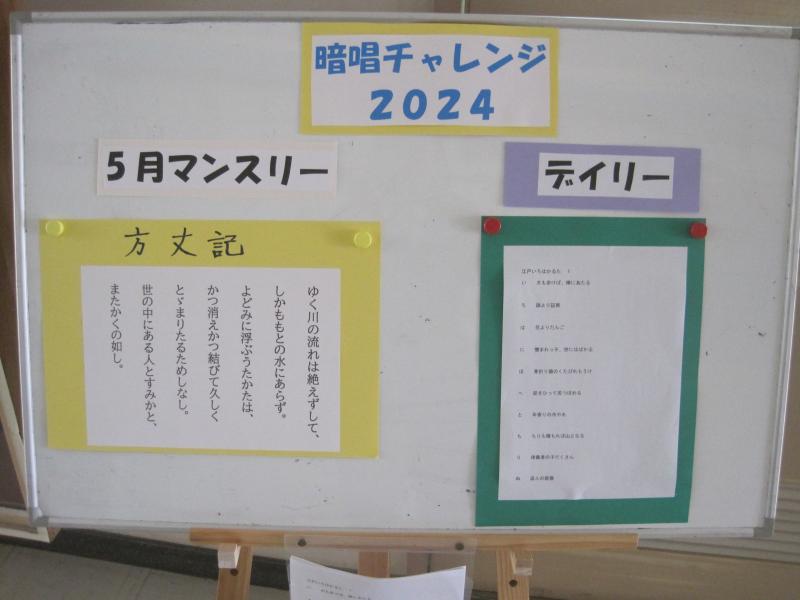 暗唱チャレンジ
2024
5月マンスリー
デイリー
方丈記
ゆく川の流れは絶えずして、
しかももとの水にあらず。
よどみに浮ぶうたかたは、
かつ消えかつ結びて久しく
とゞまりたるためしなし。
世の中にある人とすみかと、
またかくの如し。
江戸いろはかるた 1
い 犬も歩けば、棒にあたる
ろ 論より証拠
は 花よりだんご
に 憎まれっ子、世にはばかる
ほ 骨折り損のくたびれもうけ
へ 屁をひって尻つぼめる
と 年寄りの冷や水
ち ちりも積もれば山となる
り 律義者の子だくさん
ぬ 盗人の昼寝
江戸いろはかるた 1